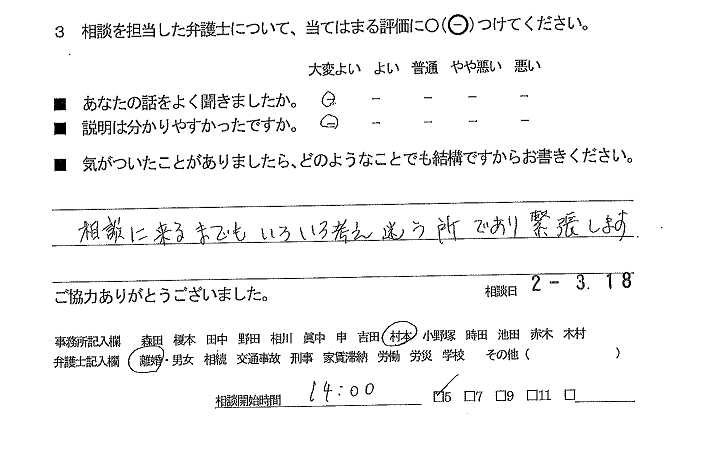 3 相談を担当した弁護士について、当てはまる評価に○(⊖)つけてください。
大変よい よい 普通 やや悪い 悪い
■ あなたの話をよく聞きましたか。 － － － － －
■ 説明は分かりやすかったですか。 － － － － －
■ 気がついたことがありましたら、どのようなことでも結構ですからお書きください。
相談に来るまでもいろいろ考え迷う所であり緊張します.
ご協力ありがとうございました。 相談日 2-3.18
事務所記入欄 森田 榎本 田中 野田 相川 眞中 申 吉田 村本 小野塚 時田 池田 赤木 木村
弁護士記入欄 離婚・男女 相続 交通事故 刑事 家賃滞納 労働 労災 学校 その他( )
相談開始時間 14:00 ☑5 □7 □9 □11 □